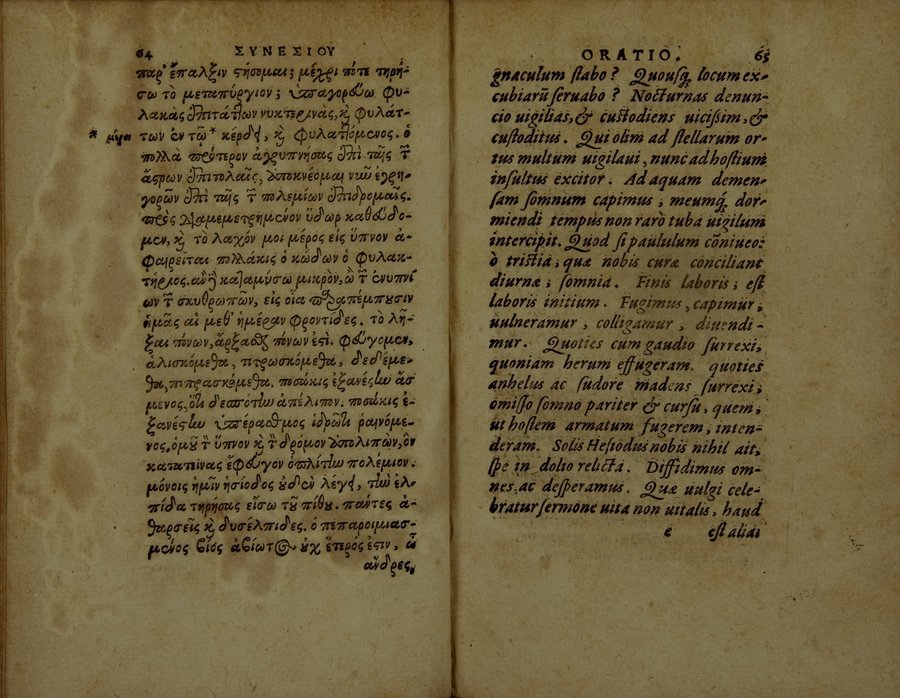 64 ΣΥΝΕΣΙΟΥ
παρ’ ἔπαλξιν στήσομαι; μέχρι πότε τηρή-
σω τὸ μεταπύργιον; ὑπαγορεύω φυ-
λακὰς ἐπιτάττων νυκτερινὰς, καὶ φυλάτ-
* μέρει των ἐν τῷ* κέρδει, καὶ φυλαττόμενος. ὁ
πολλὰ πρότερον ἀγρυπνήσας ἐπὶ ταῖς τῶν
ἄστρων ἐπιτολαῖς, ἀποκνέομαι νῦν ἐγρη-
γορῶν ἐπὶ ταῖς τῶν πολεμίων ἐπιδρομαῖς.
πρὸς διαμεμετρημένον ὕδωρ καθεύδο-
μεν, καὶ τὸ λαχόν μοι μέρος εἰς ὕπνον ἀ-
φαιρεῖται πολλάκις ὁ κώδων ὁ φυλακ-
τήριος. ἂν δὲ καταμύσω μικρὸν, ὢ τῶν ἐνυπνί
ων τῶν σκυθρωπῶν, εἰς οἷα παραπέμπουσιν
ἡμᾶς αἱ μεθ’ ἡμέραν φροντίδες. τὸ λῆ-
ξαι πόνων, ἄρξασθαι πόνων ἐστί. φεύγομεν,
ἁλισκόμεθα, τιτρωσκόμεθα, δεδέμε-
θα, πιπρασκόμεθα. ποσάκις ἐξανέστην ἄσ
μενος, ὅτι δεσπότην ἀπέλιπον. ποσάκις ἐ-
ξανέστην ὑπέρασθμος ἱδρῶτι ῥαινόμε-
νος, ὁμοῦ τὸν ὕπνον καὶ τὸν δρόμον ἀπολιπὼν, ὃν
κατατείνας ἔφευγον ὁπλίτην πολέμιον.
μόνοις ἡμῖν ἡσίοδος οὐδὲν λέγει, τὴν ἐλ-
πίδα τηρήσας εἴσω τοῦ πίθου. πάντες ἀ-
θαρσεῖς καὶ δυσέλπιδες. ὁ πεπαροιμιασ-
μένος βίος ἀβίωτος οὐχ ἕτερός ἐστιν, ὦ
ἄνδρες,
ORATIO. 65
gnaculum stabo? Quousq; locum ex-
cubiarū seruabo? Nocturnas denun-
cio uigilias, & custodiens uicissim, &
custoditus. Qui olim ad stellarum or-
tus multum uigilaui, nunc ad hostium
insultus excitor. Ad aquam demen-
sam somnum capimus, meumq; dor-
miendi tempus non rarò tuba uigilum
intercipit. Quod si paululum cōniueo:
ò tristia, quæ nobis curæ conciliant
diurnæ, somnia. Finis laboris, est
laboris initium. Fugimus, capimur,
uulneramur, colligamur, diuendi-
mur. Quoties cum gaudio surrexi,
quoniam herum effugeram. quoties
anhelus ac sudore madens surrexi,
omisso somno pariter & cursu, quem,
ut hostem armatum fugerem, inten-
deram. Solis Hesiodus nobis nihil ait,
spe in dolio relicta. Diffidimus om-
nes, ac desperamus. Quæ uulgi cele-
bratur sermone uita non uitalis, haud
e est alia: